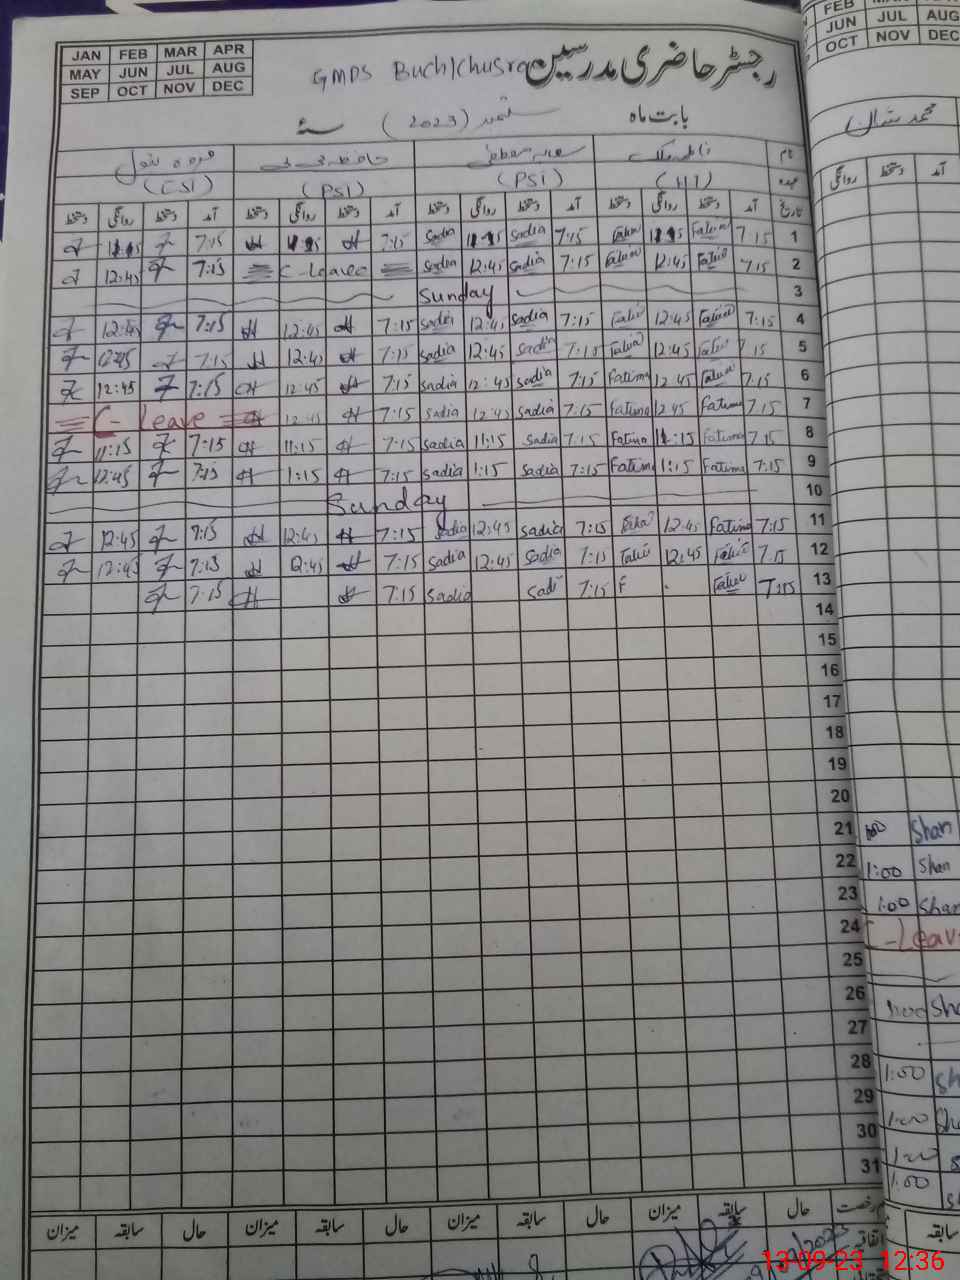 JAN FEB MAR APR
MAY JUN JUL AUG
SEP OCT NOV DEC
رجسٹر حاضری مدرسین
GMPS
بابت ماہ ستمبر (2023)
نام
(H1) (PSI) (PSI) (ESI)
عہدہ
تاریخ آمد دستخط روانگی دستخط آمد دستخط روانگی دستخط آمد دستخط روانگی دستخط آمد دستخط روانگی دستخط
1 7:15 Fatima 11:15 Fatima 7:15 Sadia 11:15 Sadia 7:15 11:15 7:15 11:15
2 7:15 Fatima 12:45 Fatima 7:15 Sadia 12:45 Sadia C-Leave 7:15 12:45
3 Sunday
4 7:15 Fatima 12:45 Fatima 7:15 Sadia 12:45 Sadia 7:15 12:45 7:15 12:45
5 7:15 Fatima 12:45 Fatima 7:15 Sadia 12:45 Sadia 7:15 12:45 7:15 12:45
6 7:15 Fatima 12:45 Fatima 7:15 Sadia 12:45 Sadia 7:15 12:45 7:15 12:45
7 7:15 Fatima 12:45 Fatima 7:15 Sadia 12:45 Sadia 7:15 12:45 C-Leave
8 7:15 Fatima 11:15 Fatima 7:15 Sadia 11:15 Sadia 7:15 11:15 7:15 11:15
9 7:15 Fatima 1:15 Fatima 7:15 Sadia 1:15 Sadia 7:15 1:15 7:15 12:45
10 Sunday
11 7:15 Fatima 12:45 7:15 Sadia 12:45 Sadia 7:15 12:45 7:15 12:45
12 7:15 Fatima 12:45 7:15 Sadia 12:45 Sadia 7:15 12:45 7:15 12:45
13 7:15 F 7:15 Sadia 7:15 7:15
14
15
16
17
18
19
20
21
22
23
24
25
26
27
28
29
30
31
حال سابقہ میزان حال سابقہ میزان حال سابقہ میزان حال سابقہ میزان
اتفاقیہ
FEB
JUN JUL AUG
OCT NOV DEC
محمد شان
آمد دستخط روانگی
Shan
1:00 Shan
1:00 Shan
C-Leave
1:00
1:00
1:00
1:00
سابقہ
13-09-23 12:36